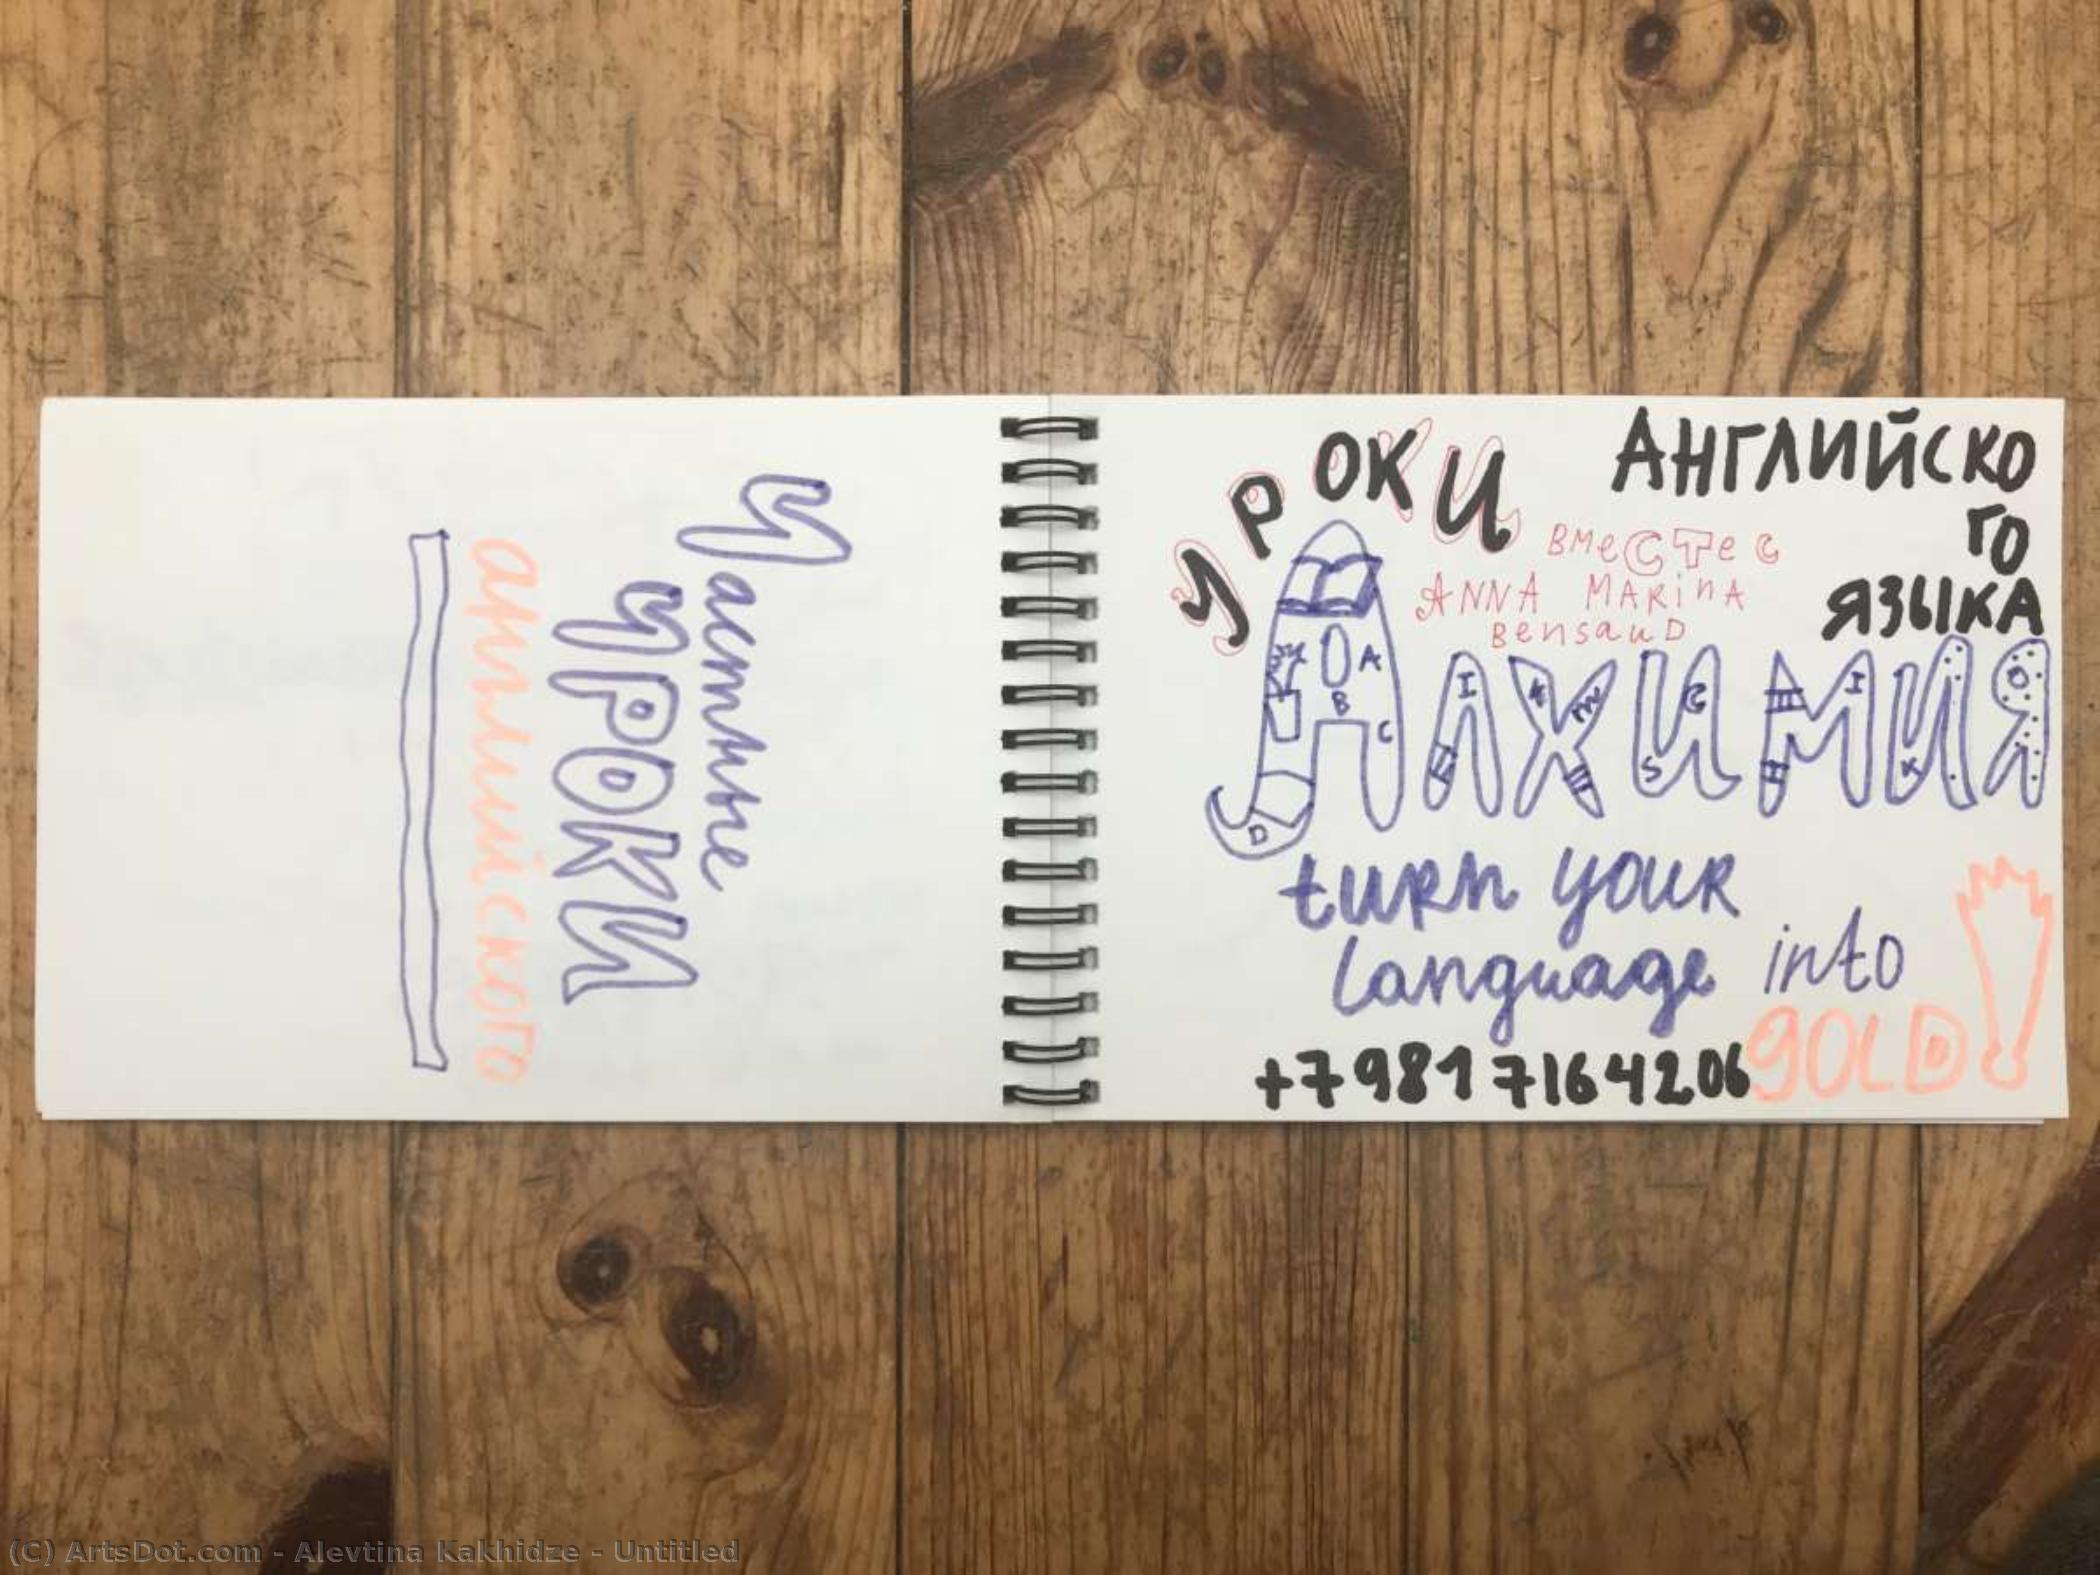 Частные
уроки
английского
УРОКИ АНГЛИЙСКО
ГО
ЯЗЫКА
ВМеСТе С
ANNA MARinA
BensauD
АЛХИМИЯ
A
B
C
D
turn your
language into
GOLD!
+7 981 7164206
(C) ArtsDot.com - Alevtina Kakhidze - Untitled